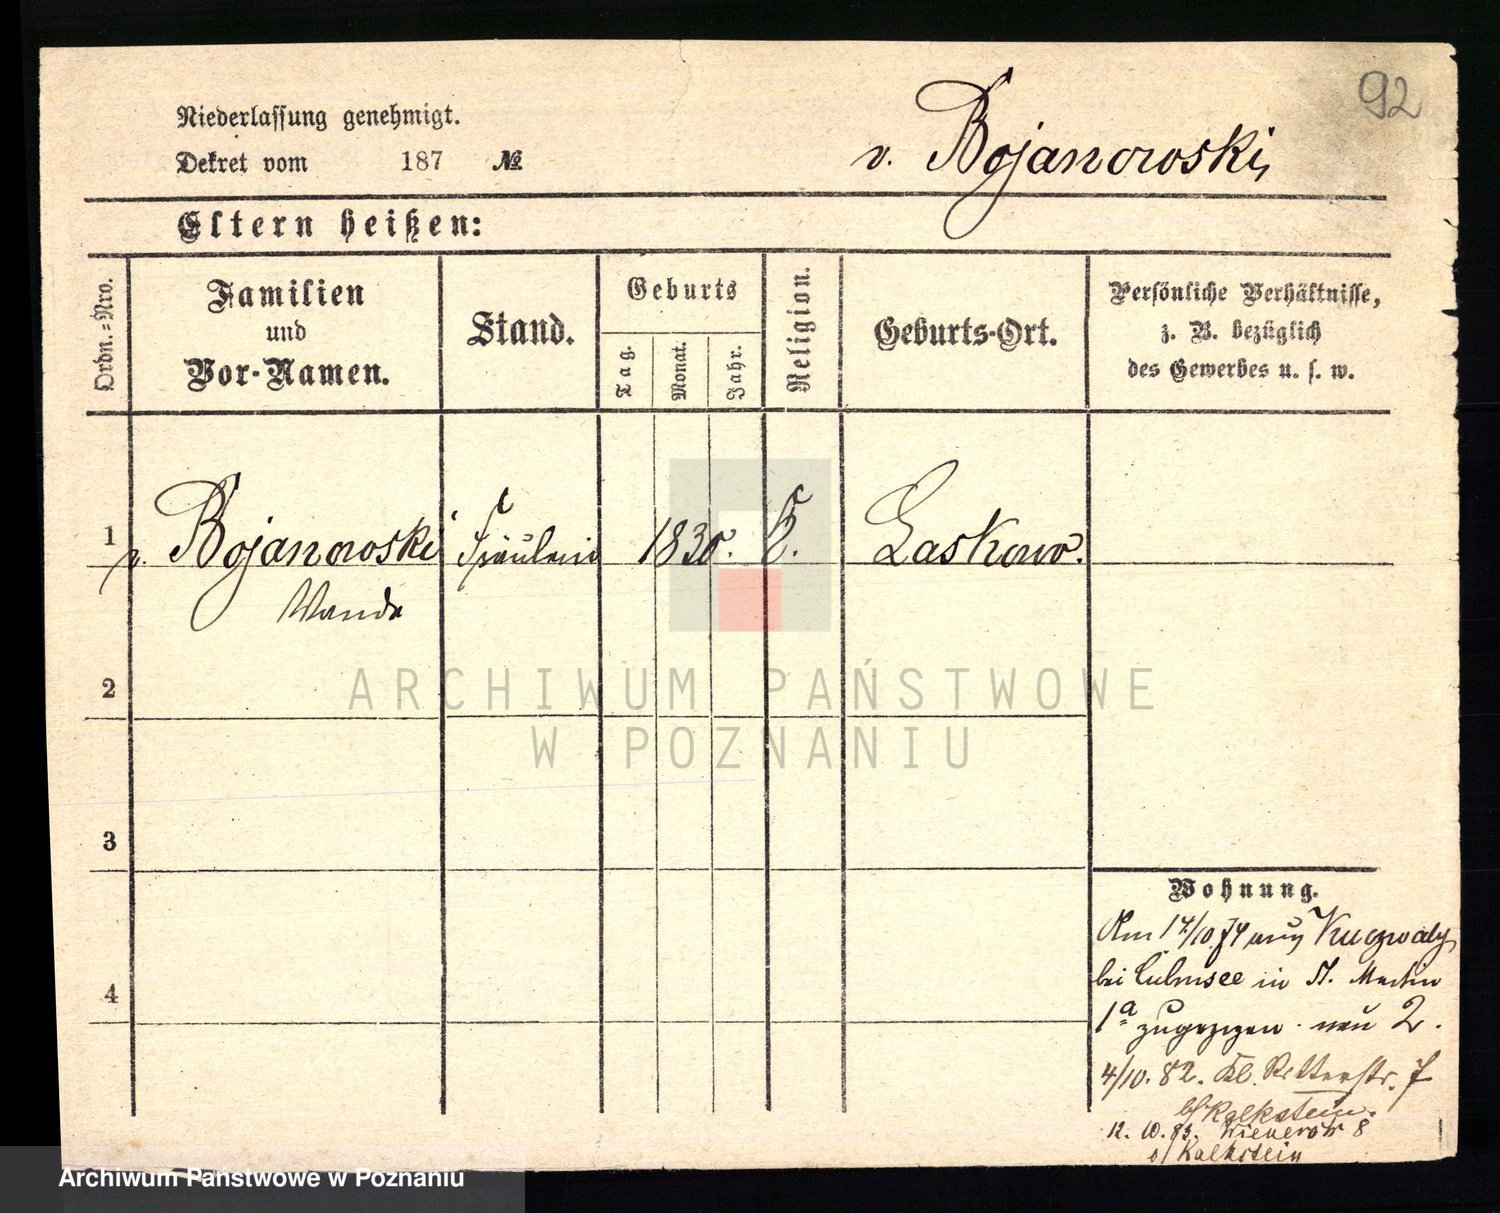 92
Niederlassung genehmigt.
v. Bojanowski,
Dekret vom 187 №
Eltern heißen:
Ordn.=Nro.
Familien
und
Vor-Namen.
Stand.
Geburts
Tag.
Monat.
Jahr.
Religion.
Geburts-Ort.
Persönliche Verhältnisse,
z. B. bezüglich
des Gewerbes u. s. w.
1
v. Bojanowski Fräulein 1830. K. Laskowo.
Wanda
2
ARCHIWUM PAŃSTWOWE
W POZNANIU
3
4
Wohnung.
Am 14/10 74 aus Kuczwaly
bei Culmsee in St. Martin
1a zugezogen. neu 2.
4/10. 82. Kl. Ritterstr. 7
bf Kalkstein.
12. 10. 83. Wienerstr 8
Kalkstein
Archiwum Państwowe w Poznaniu